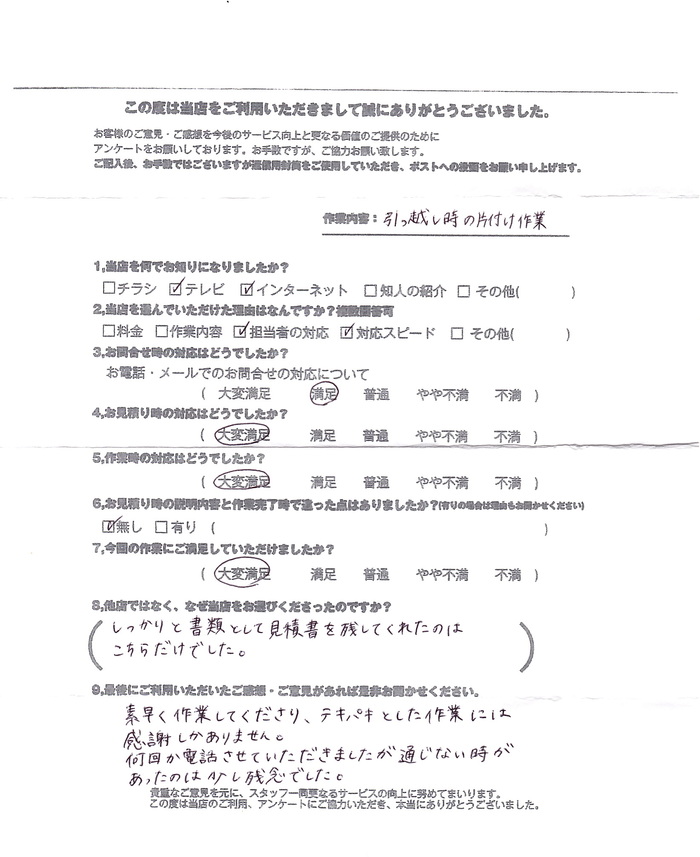 この度は当店をご利用いただきまして誠にありがとうございました。
お客様のご意見・ご感想を今後のサービス向上と更なる価値のご提供のために
アンケートをお願いしております。お手数ですが、ご協力お願い致します。
ご記入後、お手数ではございますが返信用封筒をご使用していただき、ポストへの投函をお願い申し上げます。
作業内容：引っ越し時の片付け作業
1,当店を何でお知りになりましたか？
□チラシ ☑テレビ ☑インターネット □知人の紹介 □ その他( )
2,当店を選んでいただけた理由はなんですか？複数回答可
□料金 □作業内容 ☑担当者の対応 ☑対応スピード □ その他( )
3,お問合せ時の対応はどうでしたか？
お電話・メールでのお問合せの対応について
( 大変満足 満足 普通 やや不満 不満 )
4,お見積り時の対応はどうでしたか？
( 大変満足 満足 普通 やや不満 不満 )
5,作業時の対応はどうでしたか？
( 大変満足 満足 普通 やや不満 不満 )
6,お見積り時の説明内容と作業完了時で違った点はありましたか？(有りの場合は理由もお聞かせください)
☑無し □有り ( )
7,今回の作業にご満足していただけましたか？
( 大変満足 満足 普通 やや不満 不満 )
8,他店ではなく、なぜ当店をお選びくださったのですか？
(しっかりと書類として見積書を残してくれたのは
こちらだけでした。)
9,最後にご利用いただいたご感想・ご意見があれば是非お聞かせください。
素早く作業してくださり、テキパキとした作業には
感謝しかありません。
何回か電話させていただきましたが通じない時が
あったのは少し残念でした。
貴重なご意見を元に、スタッフ一同更なるサービスの向上に努めてまいります。
この度は当店のご利用、アンケートにご協力いただき、本当にありがとうございました。